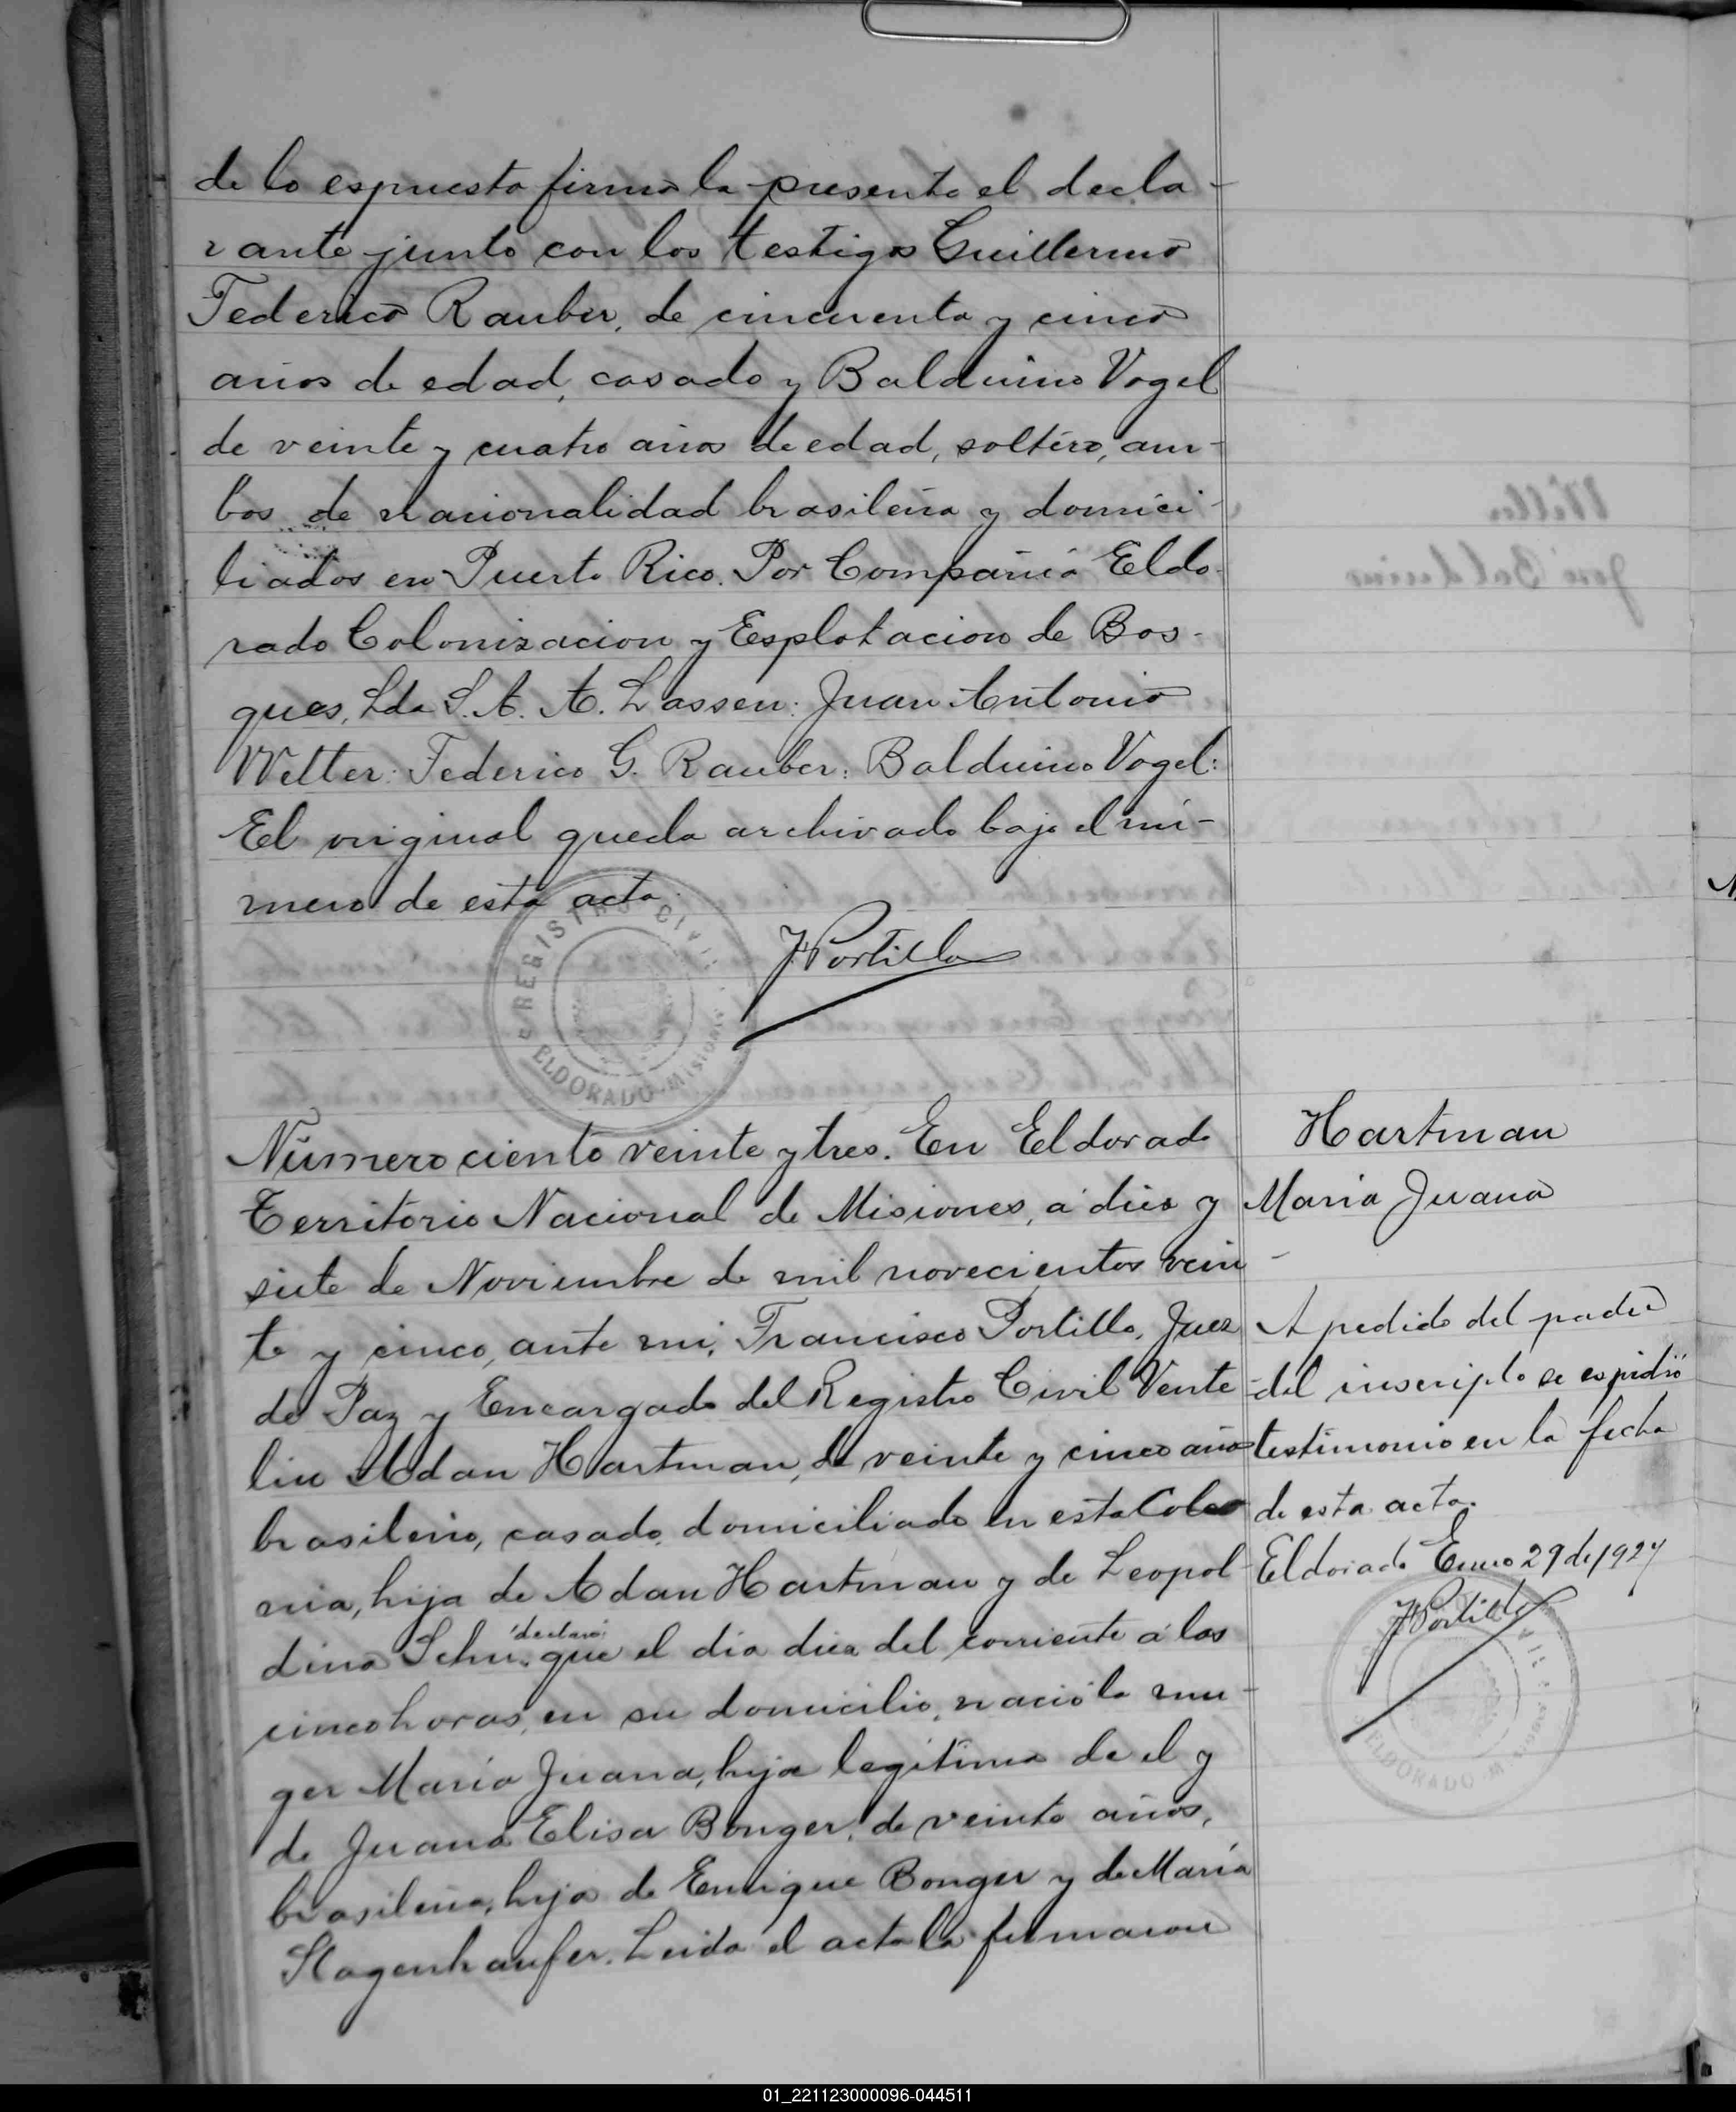 de lo espuesto firma la presente el decla-
rante junto con los testigos Guillermo
Federico Rauber, de cincuenta y cinco
años de edad, casado y Balduino Vogel
de veinte y cuatro años de edad, soltero, am-
bos de nacionalidad brasileña y domici-
liados en Puerto Rico. Por Compañia Eldo-
rado Colonizacion y Esplotacion de Bos-
ques, Lda S.A. A. Lassen: Juan Antonio
Welter: Federico G. Rauber: Balduino Vogel:
El original queda archivado bajo el nú-
mero de esta acta.
REGISTRO CIVIL
ELDORADO - Misiones
FPortillo
Número ciento veinte y tres. En Eldorado
Territorio Nacional de Misiones, a diez y
siete de Noviembre de mil novecientos vein
te y cinco, ante mi, Francisco Portillo, Juez
de Paz y Encargado del Registro Civil Vente
lin Adan Hartman, de veinte y cinco años
brasileño, casado, domiciliado en esta Colo
nia, hijo de Adan Hartman y de Leopol-
dina Schu, declaró: que el dia diez del corriente a las
cinco horas, en su domicilio, nació la mu-
ger Maria Juana, hija legítima de el y
de Juana Elisa Bonger, de veinte años,
brasileña, hija de Enrique Bonger y de Maria
Hagenhaufer. Leida el acta la firmaron
Hartman
Maria Juana
A pedido del padre
del inscripto se espidió
testimonio en la fecha
de esta acta.
Eldorado Enero 29 de 1927
FPortillo
ELDORADO - Misiones
01_221123000096-044511